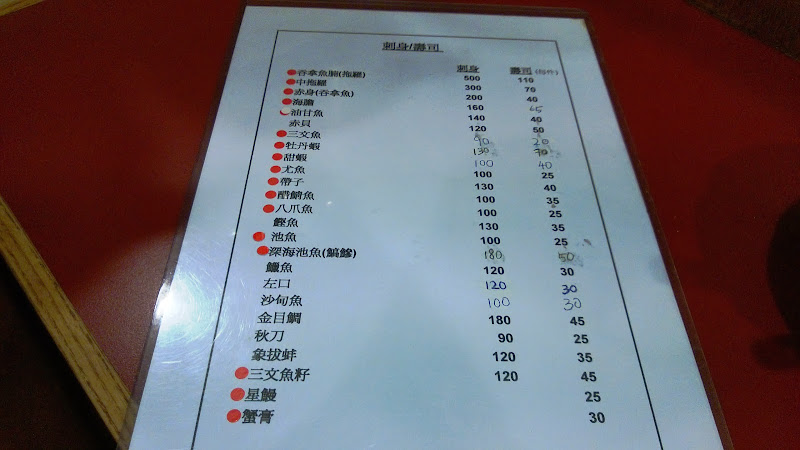 刺身/壽司
刺身 壽司 (每件)
吞拿魚腩(拖羅) 500 110
中拖羅 300 70
赤身(吞拿魚) 200 40
海膽 160
油甘魚 140 40
赤貝 120 50
三文魚 90 20
牡丹蝦 130 70
甜蝦 100 40
尤魚 100 25
帶子 130 40
醋鯖魚 100 35
八爪魚 100 25
鰹魚 130 35
池魚 100 25
深海池魚(鰝鰺) 180 50
鱲魚 120 30
左口 120 30
沙甸魚 100 30
金目鯛 180 45
秋刀 90 25
象拔蚌 120 35
三文魚籽 120 45
星鰻 25
蟹膏 30